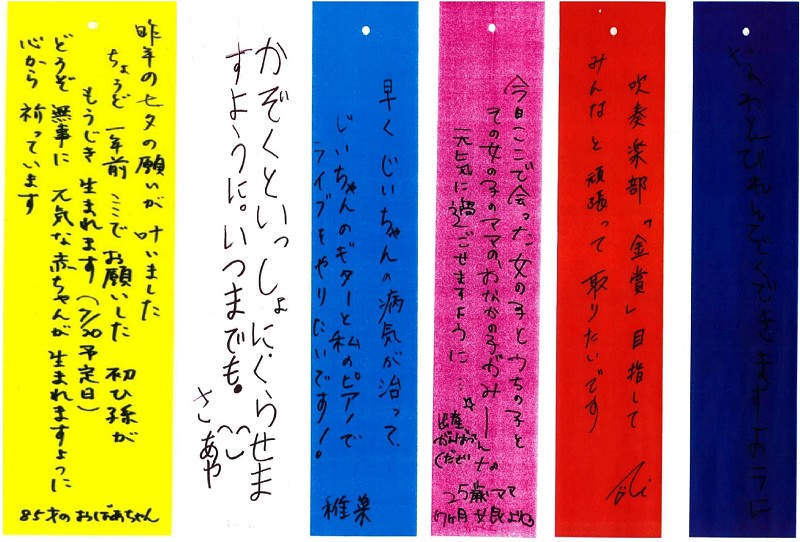 昨年の七夕の願いが叶いました
ちょうど一年前ここでお願いした初ひ孫が
もうじき生まれます(7/20予定日)
どうぞ無事に元気な赤ちゃんが生まれますように
心から祈っています
85才のおばあちゃん
かぞくといっしょにくらせま
すように。いつまでも。
さあや
早くじいちゃんの病気が治って、
じいちゃんのギターと私のピアノで
ライブをやりたいです!
稚菜
今日ここで会った女の子とうちの子と
その女の子のママのおなかの子がみーんな
元気に過ごせますように…☆
出産
がんばって
くだで
25歳ママ
吹奏楽部「金賞」目指して
みんなと頑張って取りたいです
なわとびれんぞくできますように